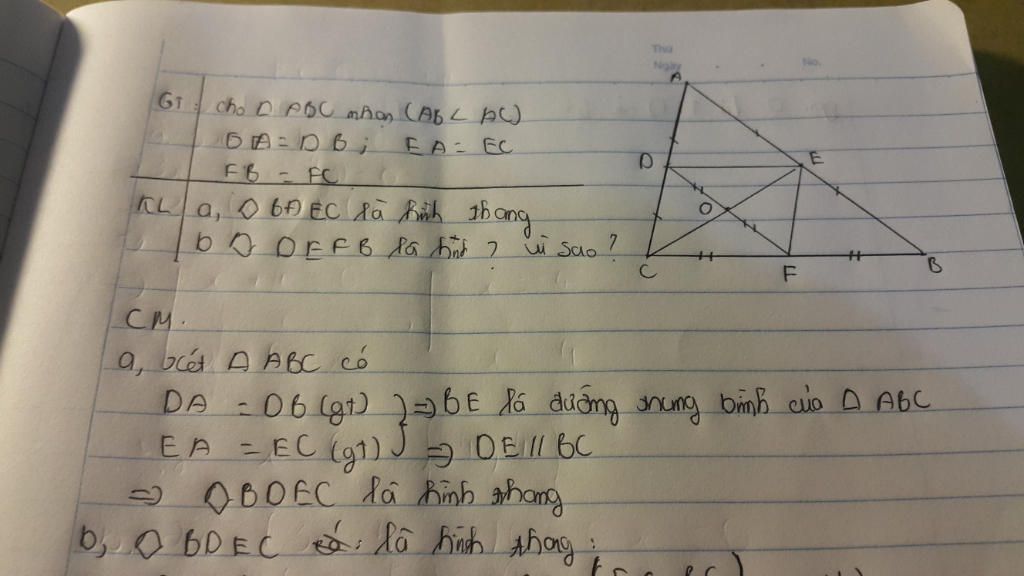 Thứ
Ngày
No.
GT: cho △ ABC nhọn (AB < AC)
DA = DB; EA = EC
FB = FC
KL a, ◇ BDEC là hình thang
b ◇ DEFB là hình? Vì sao?
A
D
E
O
C
F
B
CM.
a, xét △ ABC có
DA = DB (gt) } => DE là đường trung bình của △ ABC
EA = EC (gt) => DE // BC
=> ◇ BDEC là hình thang
b, ◇ BDEC là hình thang: